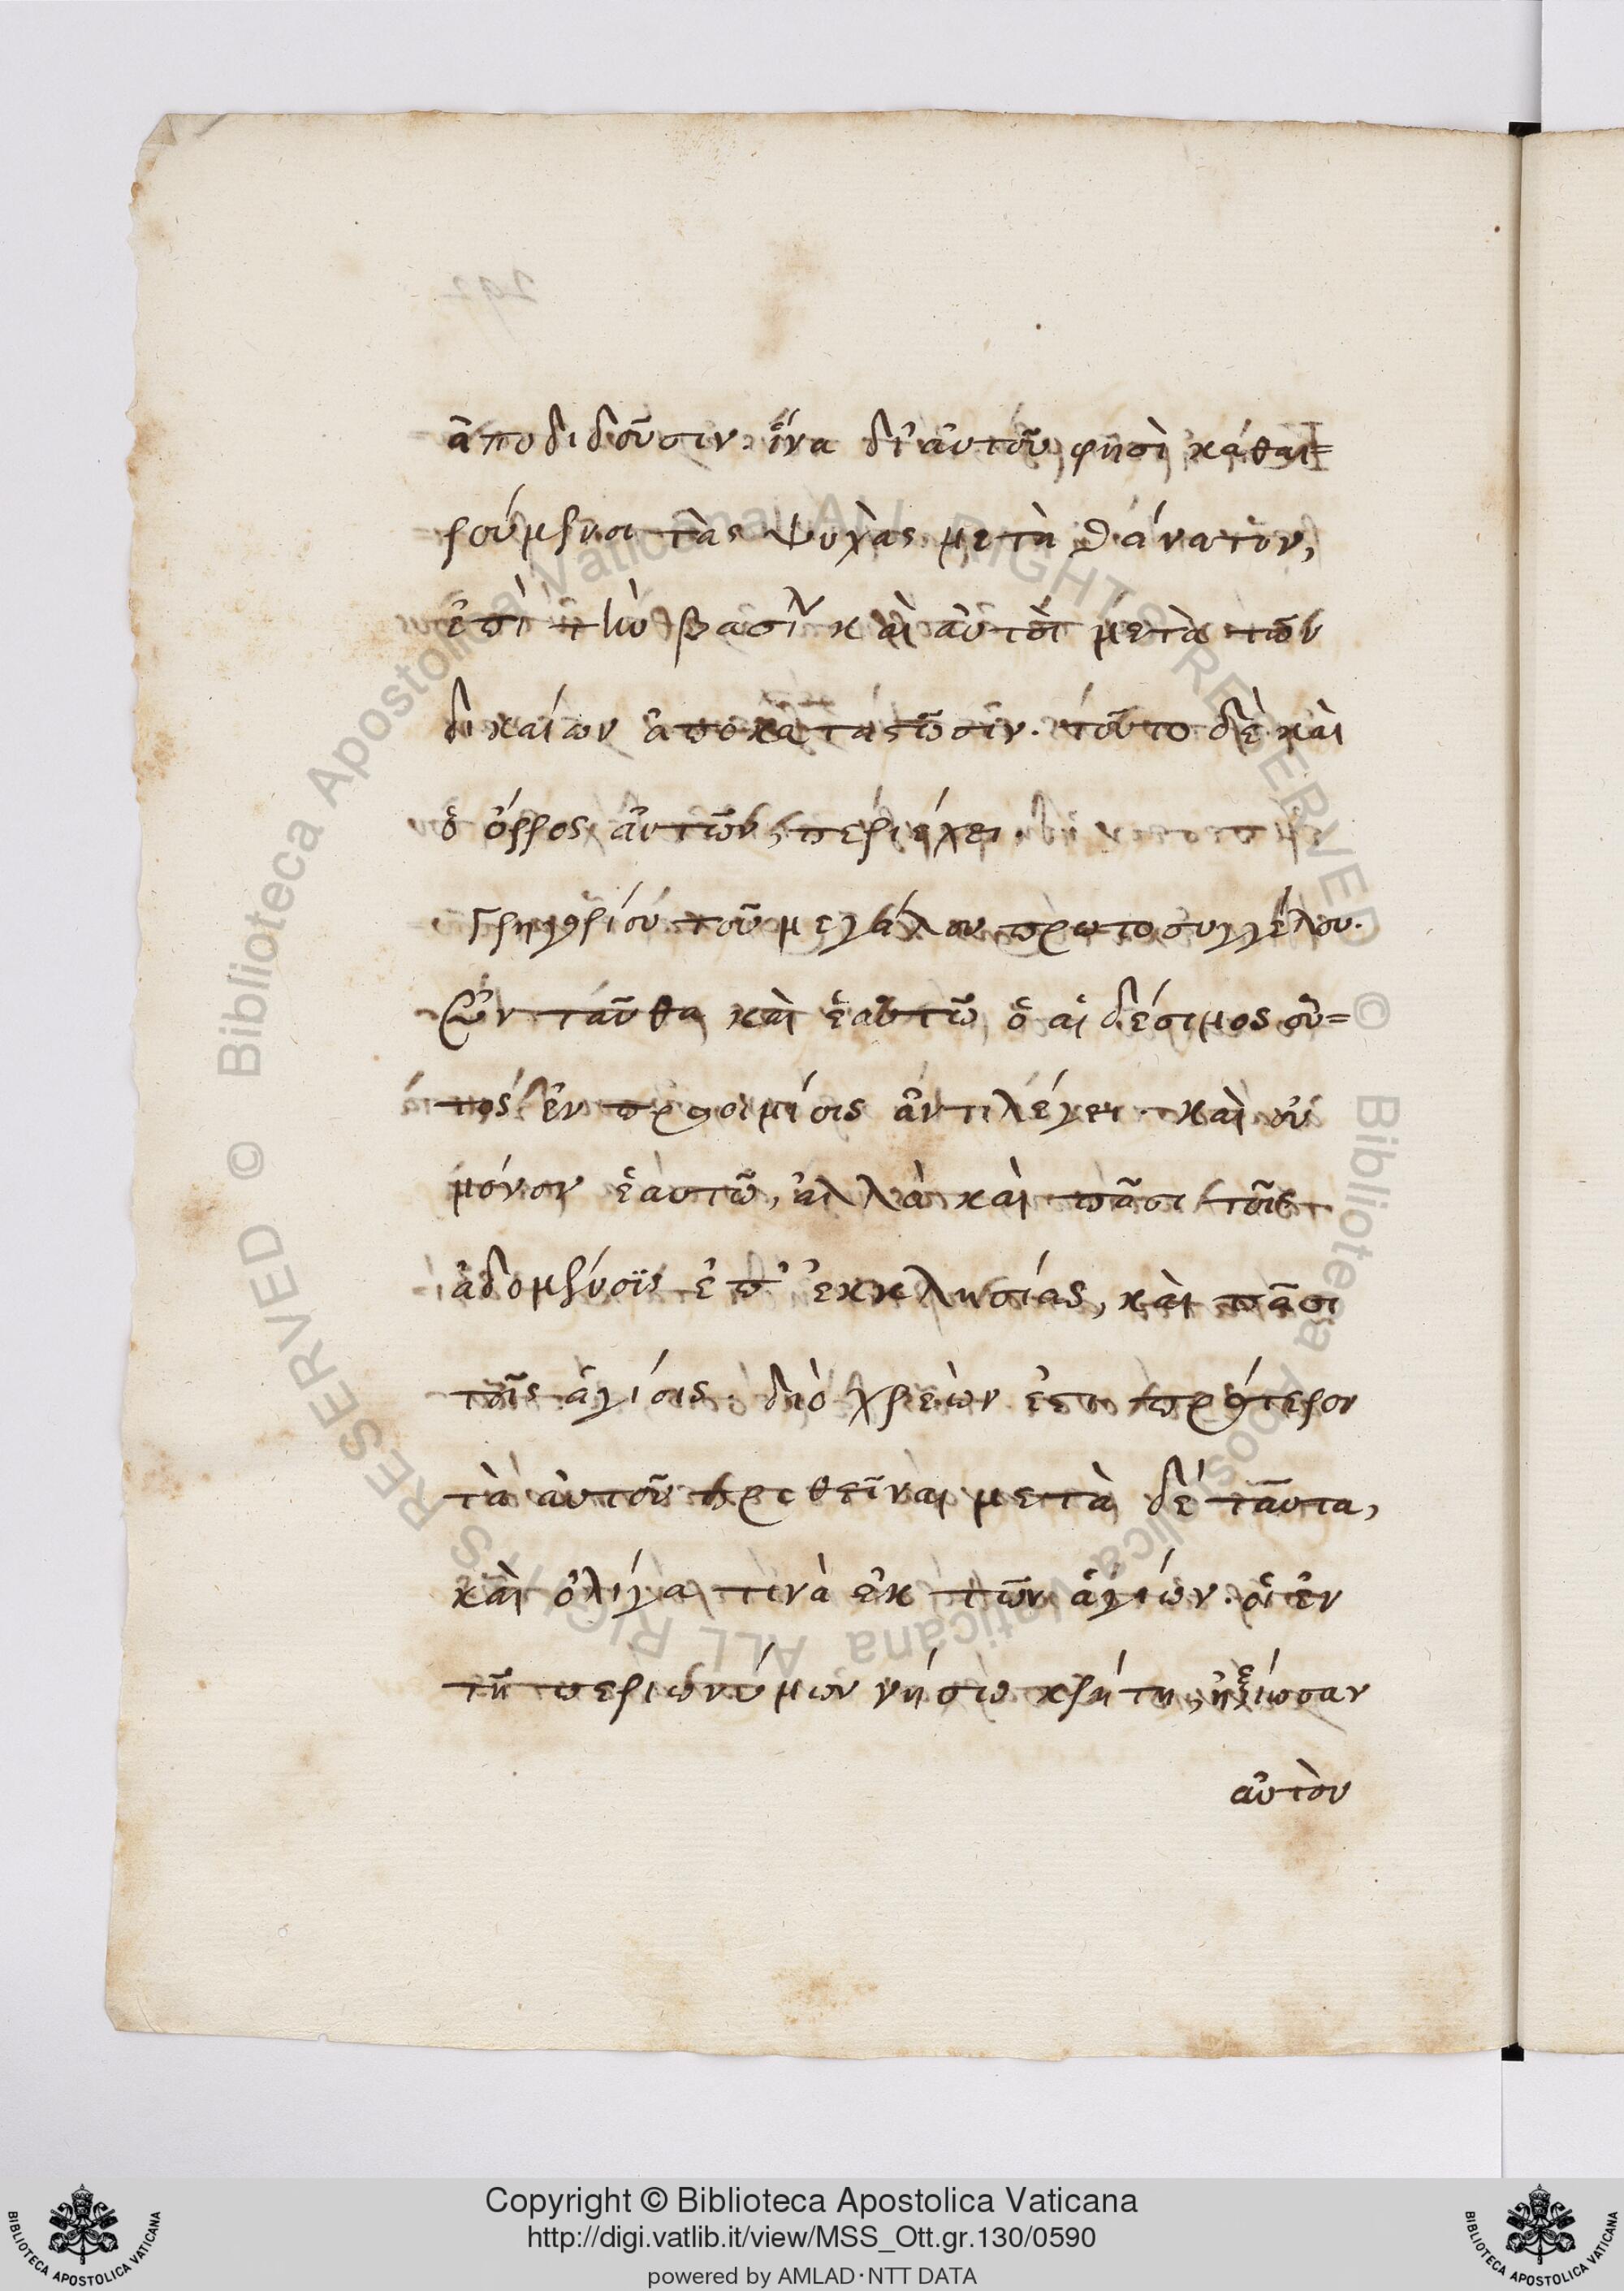 ἀποδιδοῦσιν. ἵνα δι' αὐτοῦ φησὶ καθαι=
ρούμενοι τὰς ψυχὰς μετὰ θάνατον,
ἐπὶ τὴν βασιλ καὶ αὐτοὶ μετὰ τῶν
δικαίων ἀποκαταστῶσιν. τοῦτο δὲ καὶ
ὁ ὅρρος αὐτῶν, περιέχει.
Γρηγορίου τοῦ μεγάλου πρωτοσυγγέλου.
Ἐνταῦθα καὶ ἑαυτῶ ὁ αἰδέσιμος οὗ=
τος ἐν προοιμίοις ἀντιλέγει. καὶ οὐ
μόνον ἑαυτῶ, ἀλλὰ καὶ πᾶσι τοῖς
ἀδομένοις ἐπ' ἐκκλησίας, καὶ πᾶσι
τοῖς ἁγίοις. διὸ χρεὼν ἐστι πρότερον
τὰ αὐτοῦ τεθεῖναι μετὰ δὲ ταῦτα,
καὶ ὀλίγα τινὰ ἐκ τῶν ἁγίων. οἱ ἐν
τῆ περιωνύμων νήσω κρήτη, ἠξίωσαν
αὐτὸν
Copyright © Biblioteca Apostolica Vaticana
http://digi.vatlib.it/view/MSS_Ott.gr.130/0590
powered by AMLAD·NTT DATA
BIBLIOTECA APOSTOLICA VATICANA
BIBLIOTECA APOSTOLICA VATICANA
© Biblioteca Apostolica Vaticana ALL RIGHTS RESERVED
© Biblioteca Apostolica Vaticana ALL RIGHTS RESERVED